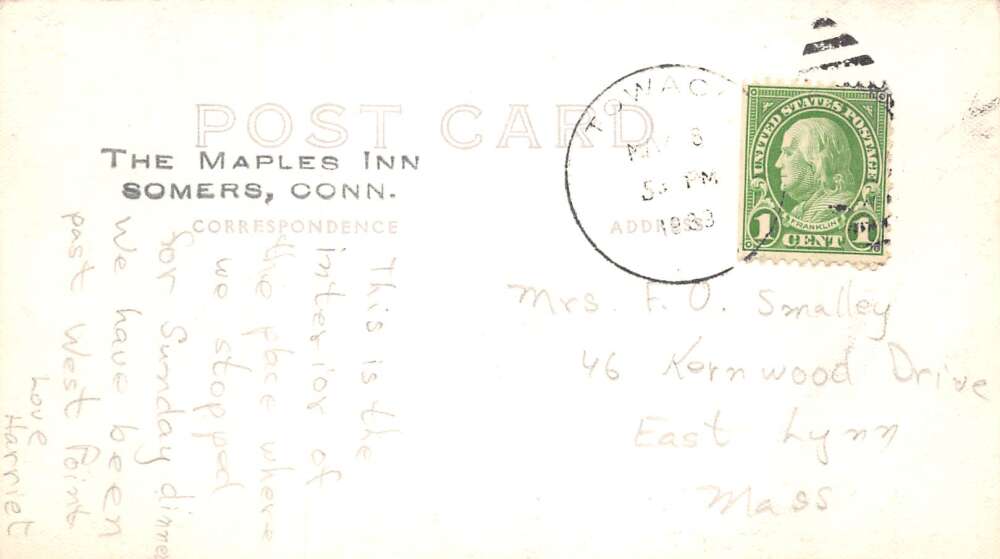 POST CARD
THE MAPLES INN
SOMERS, CONN.
CORRESPONDENCE
ADDRESS
PM
UNITED STATES POSTAGE
FRANKLIN
1 CENT 1
This is the
interior of
the place where
we stopped
for Sunday dinner
We have been
past West Point
Love
Harriet
Mrs. F. O. Smalley
46 Kernwood Drive
East Lynn
Mass